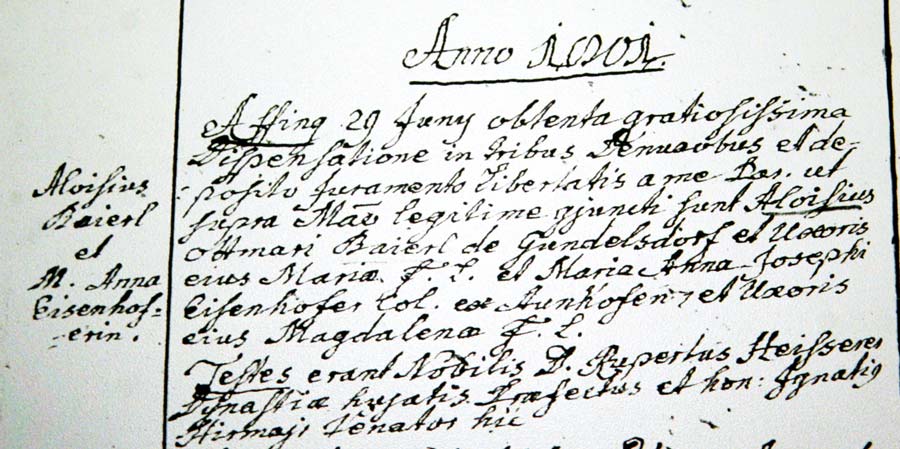 Anno 1801.
Aloisius
Baierl
et
M. Anna
Eisenhof=
=erin.
Affing 29 Juny obtenta gratiosissima
Dispensatione in tribus Denuaõbus et de=
posito Juramento libertatis a me Par. ut
supra Mãv legitime cjuncti sunt Aloisius
Ottmari Baierl de Gundelsdorf et Uxoris
eius Mariæ F. L. et Maria Anna Josephi
Eisenhofer Col. ex Aunhofen, et Uxoris
eius Magdalenæ F. L.
Testes erant Nobilis D. Rupertus Heisserer
Dynastiæ hujatis Præfectus et hon: Ignatius
Hirmajr Senator hic